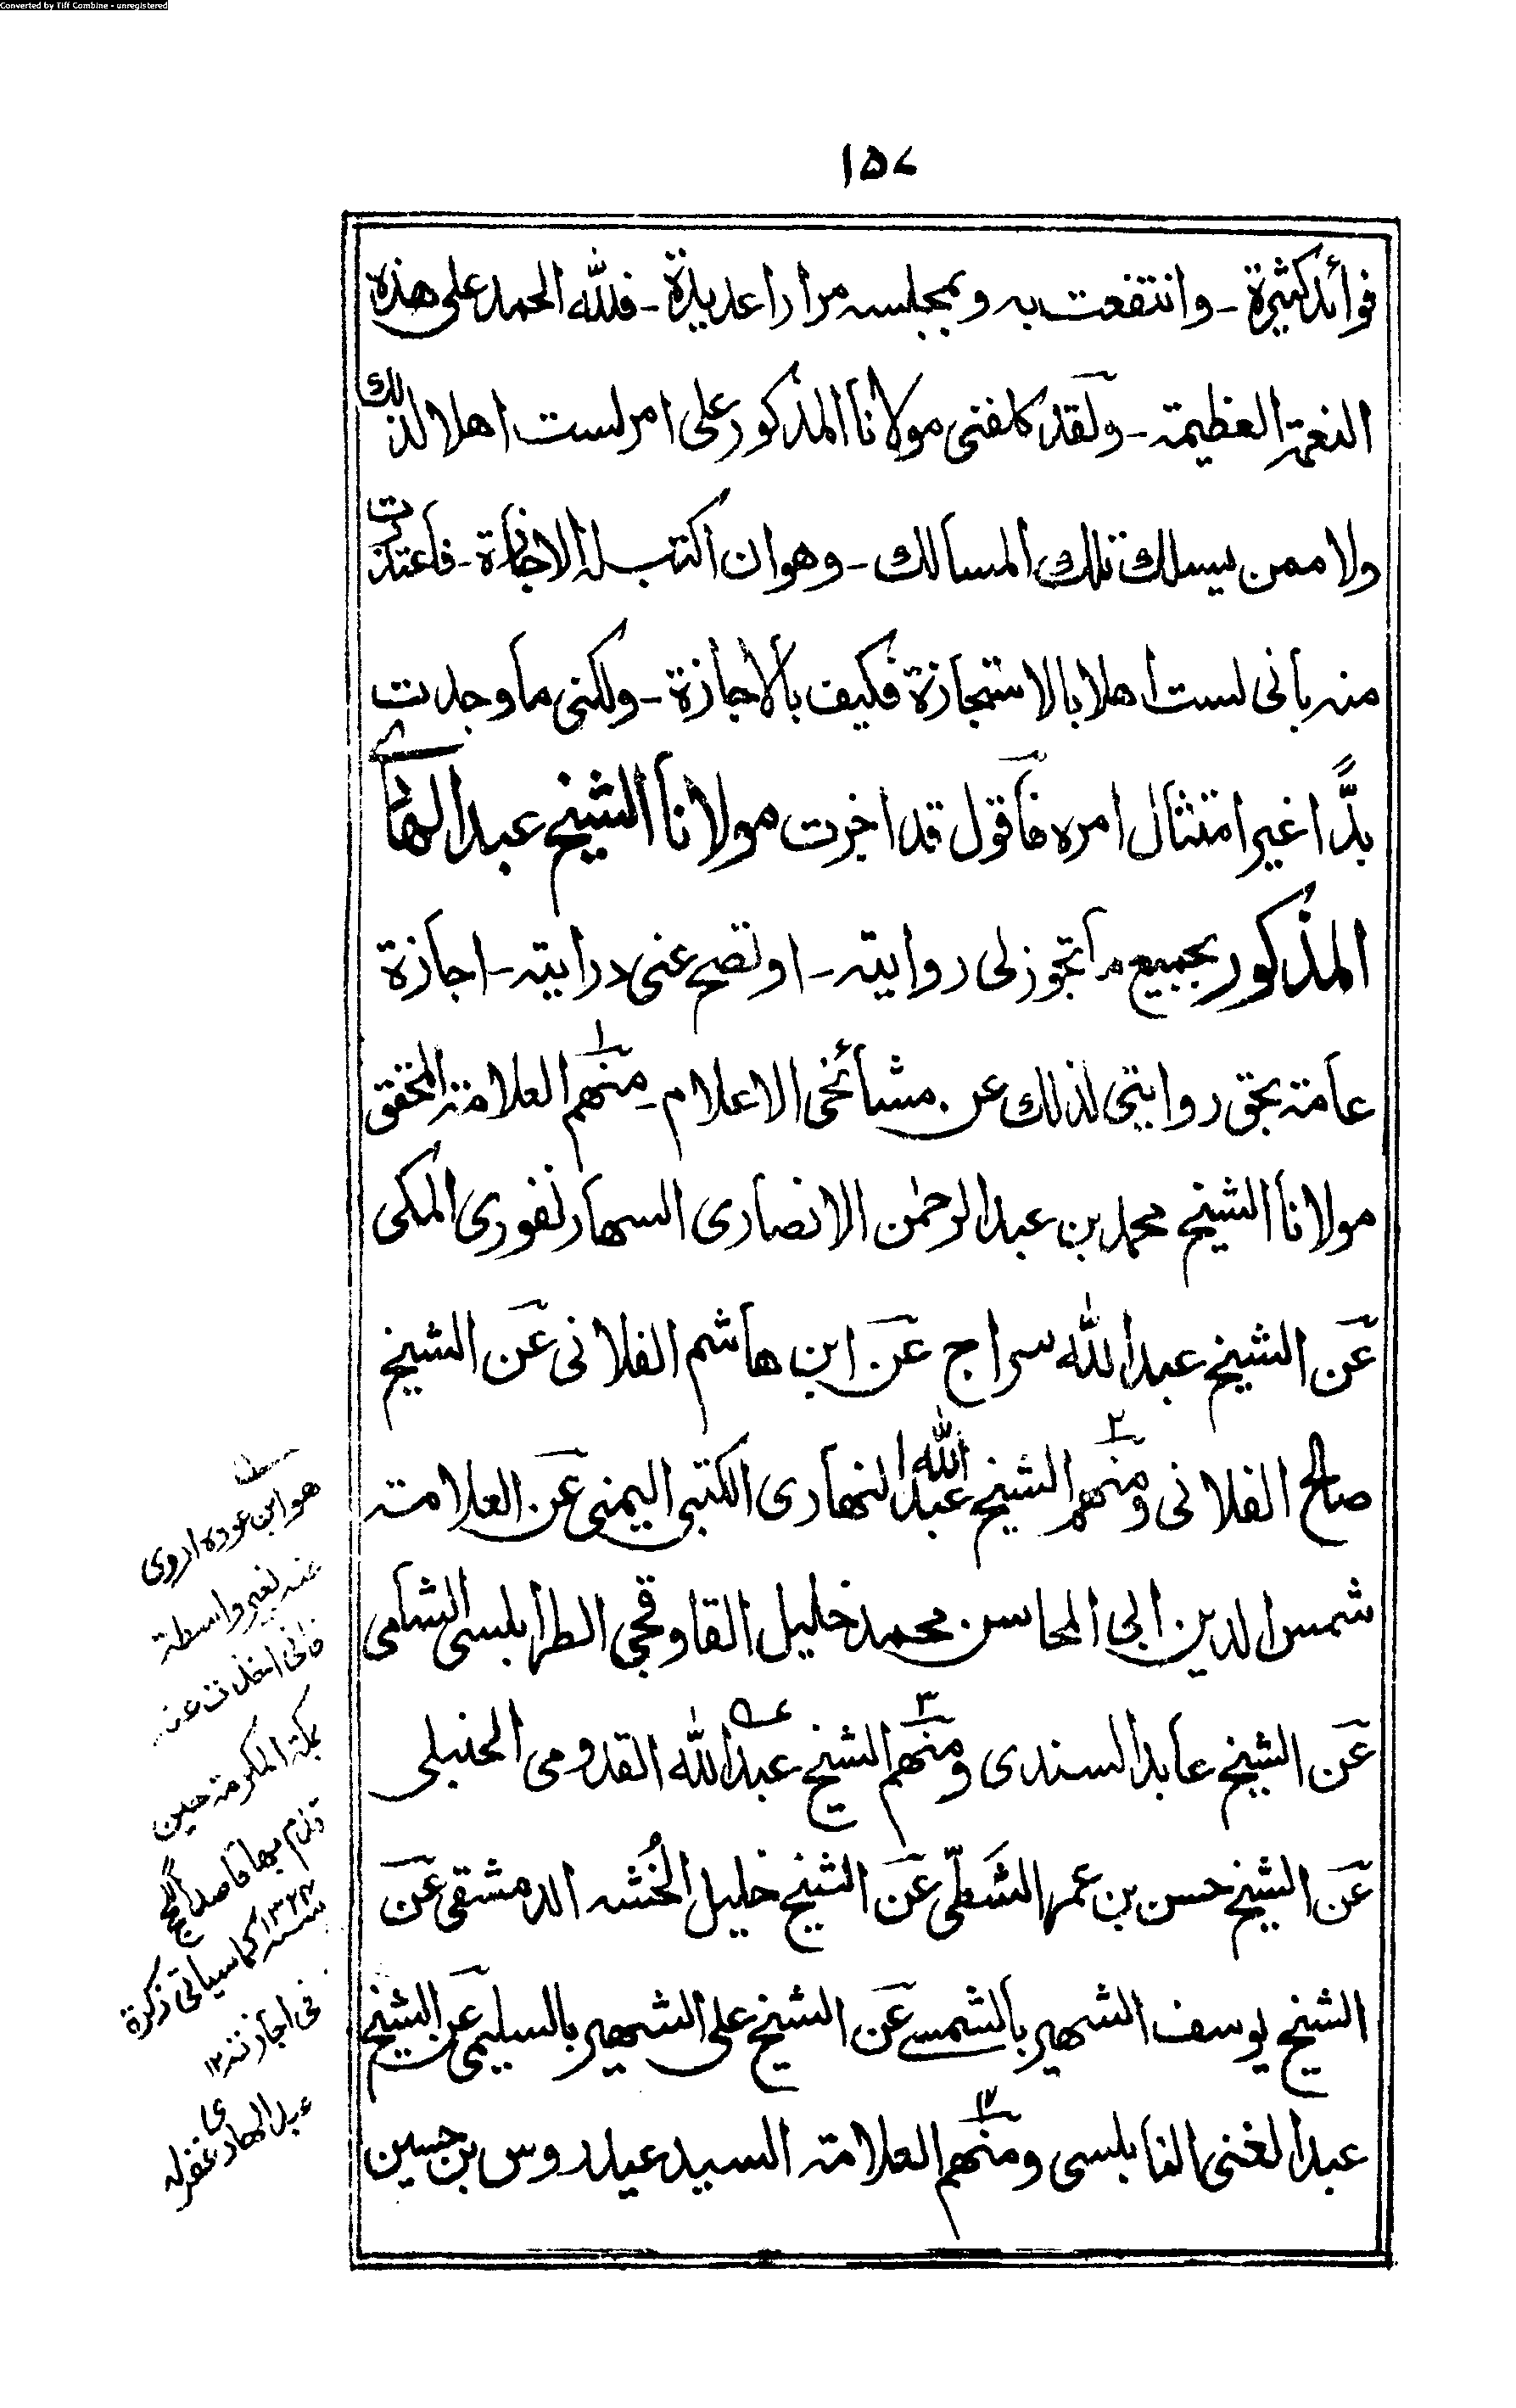 Converted by Tiff Combine - unregistered
١٥٧
فوائد كثيرة - وانتفعت به وبمجلسه مرارا عديدة - فلله الحمد على هذه
النعمة العظيمة - ولقد كلفنى مولانا المذكور على امر لست اهلا لذلك
ولا ممن يسلك تلك المسالك - وهو ان اكتب له الاجازة - فاعتذرت
منه بانى لست اهلا بالاستجازة فكيف بالاجازة - ولكنى ما وجدت
بدًّا غير امتثال امره فاقول قد اجزت مولانا الشيخ عبد الهادي
المذكور بجميع ما تجوز لى روايته - او تصح عنى درايته - اجازة
عامة بحق روايتى لذلك عن مشائخى الاعلام - ١ منهم العلامة المحقق
مولانا الشيخ محمد بن عبد الرحمٰن الانصارى السهارنفورى المكى
عن الشيخ عبد الله سراج عن ابن هاشم الفلانى عن الشيخ
صالح الفلانى و٢ منهم الشيخ عبد الله النهارى الكتبى اليمنى عن العلامة
شمس الدين ابى المحاسن محمد خليل القاوقجى الطرابلسى الشامى
عن الشيخ عابد السندى و٣ منهم الشيخ عبد الله القدومى الحنبلى
عن الشيخ حسن بن عمر الشطّى عن الشيخ خليل الخُشه الدمشقى عن
الشيخ يوسف الشهير بالشمسے عن الشيخ على الشهير بالسليمى عن الشيخ
عبد الغنى النابلسى و٤ منهم العلامة السيد عيدروس بن حسين
هو ابن عوده اروى
عنه بغير واسطة
فانى اخذت عنه
بمكة المكرمة حين
قدم بها قاصد الحج
سنة ١٣٢٤ كما سياتى ذكرة
فى اجازته ١٢
عبد الهادى غفرله